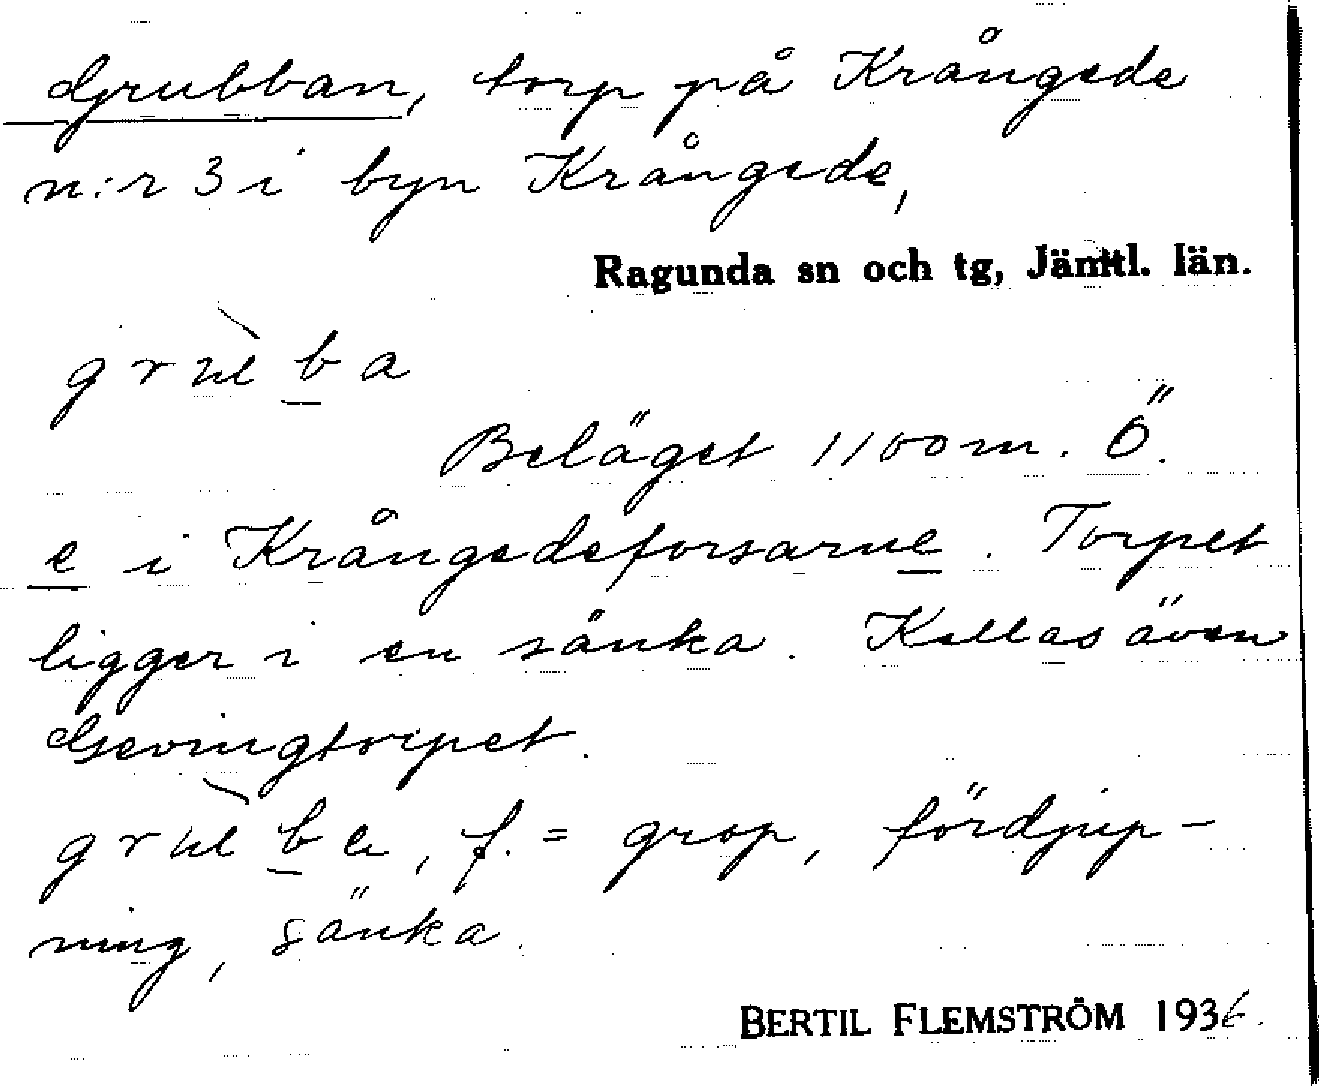 Grubban, torp på Krångede
n:r 3 i byn Krångede,
Ragunda sn och tg, Jämtl. län.
Beläget 1100 m. Ö.
e i Krångedeforsarne. Torpet
ligger i en sänka. Kallas även
Gevingtorpet.
f. = grop, fördjup-
ning, sänka.
BERTIL FLEMSTRÖM 1936.